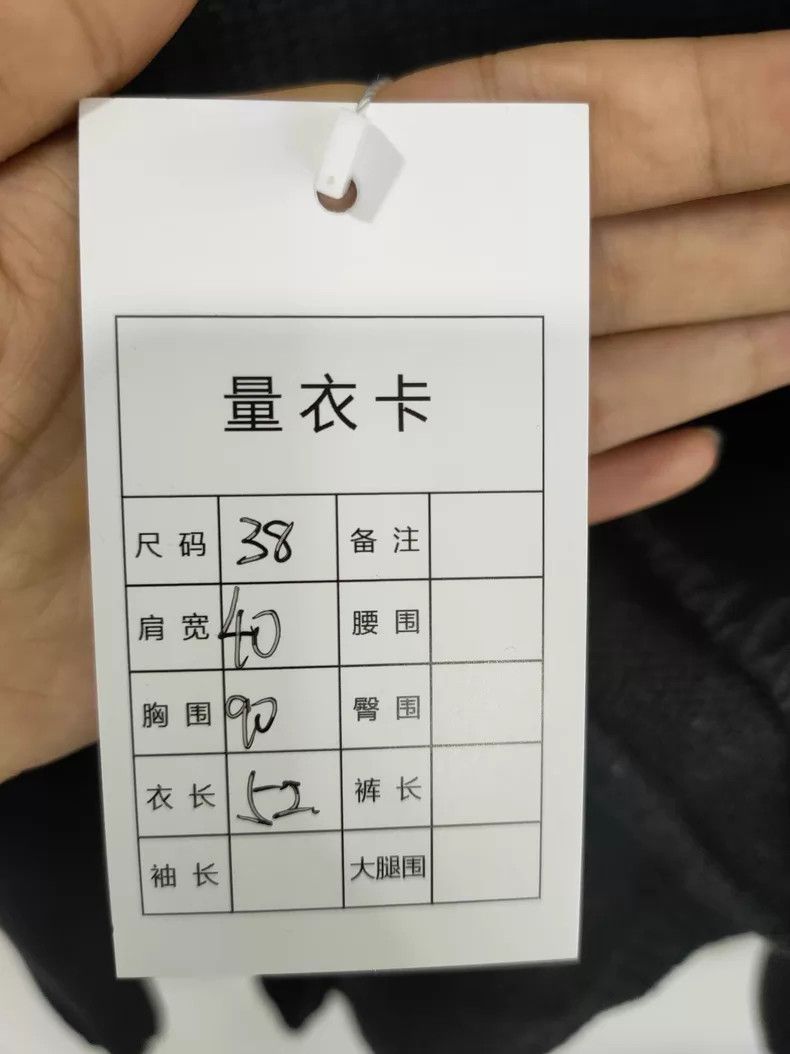 量衣卡
尺码 38 备注
肩宽 40 腰围
胸围 90 臀围
衣长 52 裤长
袖长 大腿围